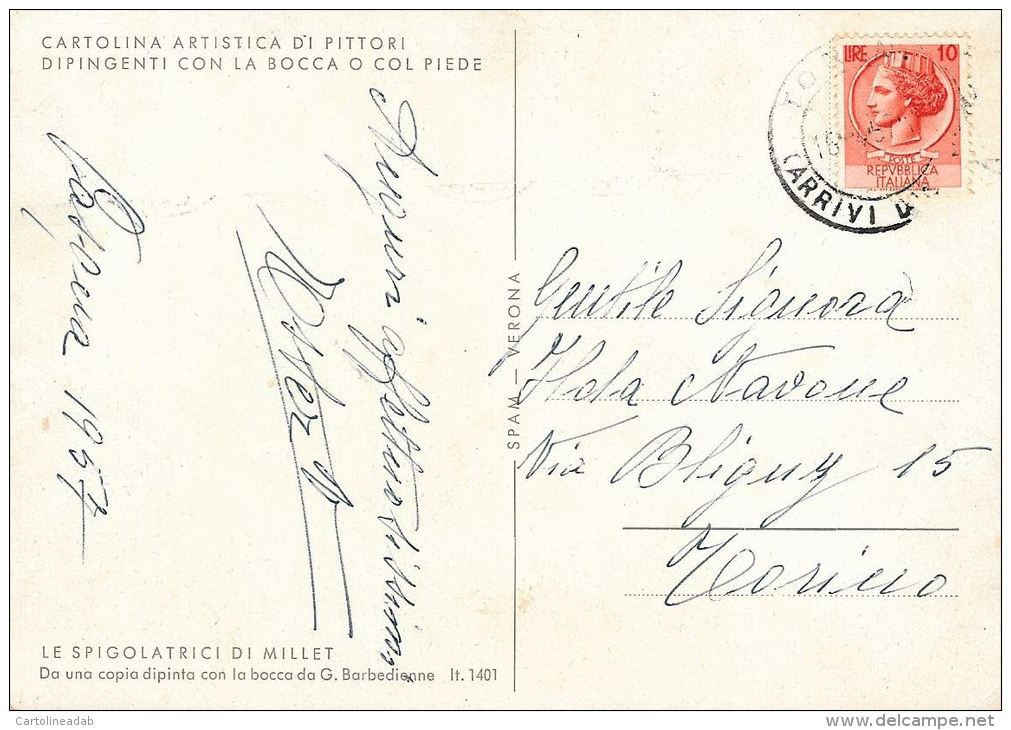 CARTOLINA ARTISTICA DI PITTORI
DIPINGENTI CON LA BOCCA O COL PIEDE
Pasqua 1957
Auguri affettuosissimi
Ester
SPAM — VERONA
LIRE 10
POSTE
REPVBBLICA
ITALIANA
TO
16
ARRIVI
Gentile Signora
Navone
Via Bligny 15
Torino
LE SPIGOLATRICI DI MILLET
Da una copia dipinta con la bocca da G. Barbedienne It. 1401
Cartolineadab
www.delcampe.net